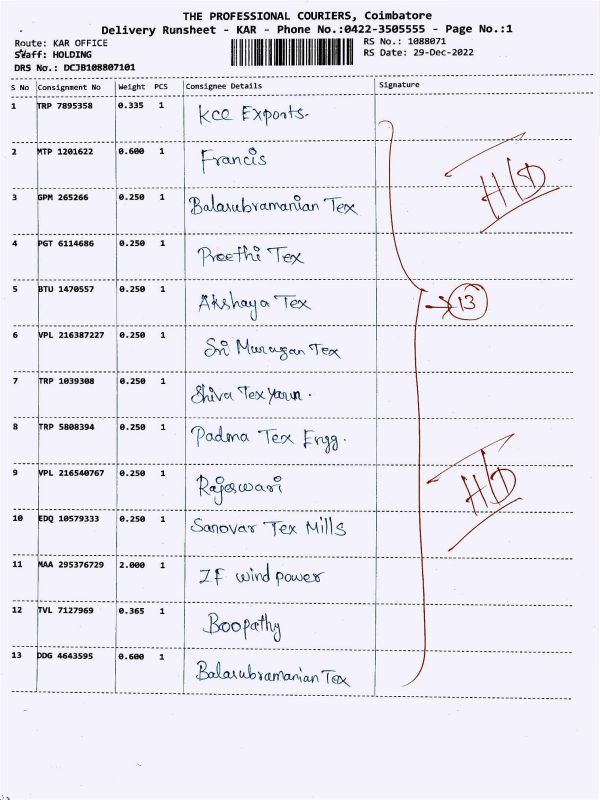 THE PROFESSIONAL COURIERS, Coimbatore
Delivery Runsheet - KAR - Phone No.:0422-3505555 - Page No.:1
Route: KAR OFFICE
Staff: HOLDING
DRS No.: DCJB108807101
RS No.: 1088071
RS Date: 29-Dec-2022
S No Consignment No Weight PCS Consignee Details Signature
1 TRP 7895358 0.335 1 Kce Exports.
2 MTP 1201622 0.600 1 Francis
3 GPM 265266 0.250 1 Balasubramanian Tex
4 PGT 6114686 0.250 1 Preethi Tex
5 BTU 1470557 0.250 1 Akshaya Tex
13
6 VPL 216387227 0.250 1 Sri Murugan Tex
7 TRP 1039308 0.250 1 Shiva Tex yarn.
8 TRP 5808394 0.250 1 Padma Tex Engg.
9 VPL 216540767 0.250 1 Rajeswari
10 EDQ 10579333 0.250 1 Sanovar Tex Mills
11 MAA 295376729 2.000 1 ZF wind power
12 TVL 7127969 0.365 1 Boopathy
13 DDG 4643595 0.600 1 Balasubramanian Tex